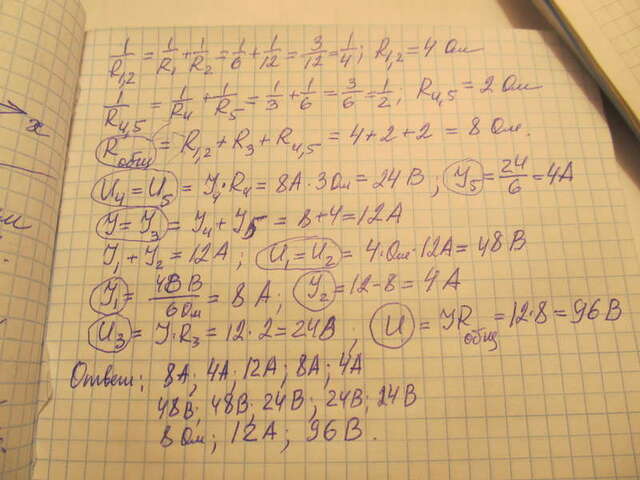 1/R1,2 = 1/R1 + 1/R2 = 1/6 + 1/12 = 3/12 = 1/4; R1,2 = 4 Ом
1/R4,5 = 1/R4 + 1/R5 = 1/3 + 1/6 = 3/6 = 1/2; R4,5 = 2 Ом
Rобщ = R1,2 + R3 + R4,5 = 4 + 2 + 2 = 8 Ом.
U4 = U5 = У4 · R4 = 8А · 3 Ом = 24 В; У5 = 24/6 = 4А
У = У3 = У4 + У5 = 8 + 4 = 12А
У1 + У2 = 12А; U1 = U2 = 4 · Ом · 12А = 48 В
У1 = 48 В/6 Ом = 8 А; У2 = 12 - 8 = 4 А
U3 = У · R3 = 12 · 2 = 24В; U = УRобщ = 12 · 8 = 96 В
Ответ: 8А; 4А; 12А; 8А; 4А
48В; 48В; 24В; 24В; 24В
8 Ом; 12А; 96 В.
x